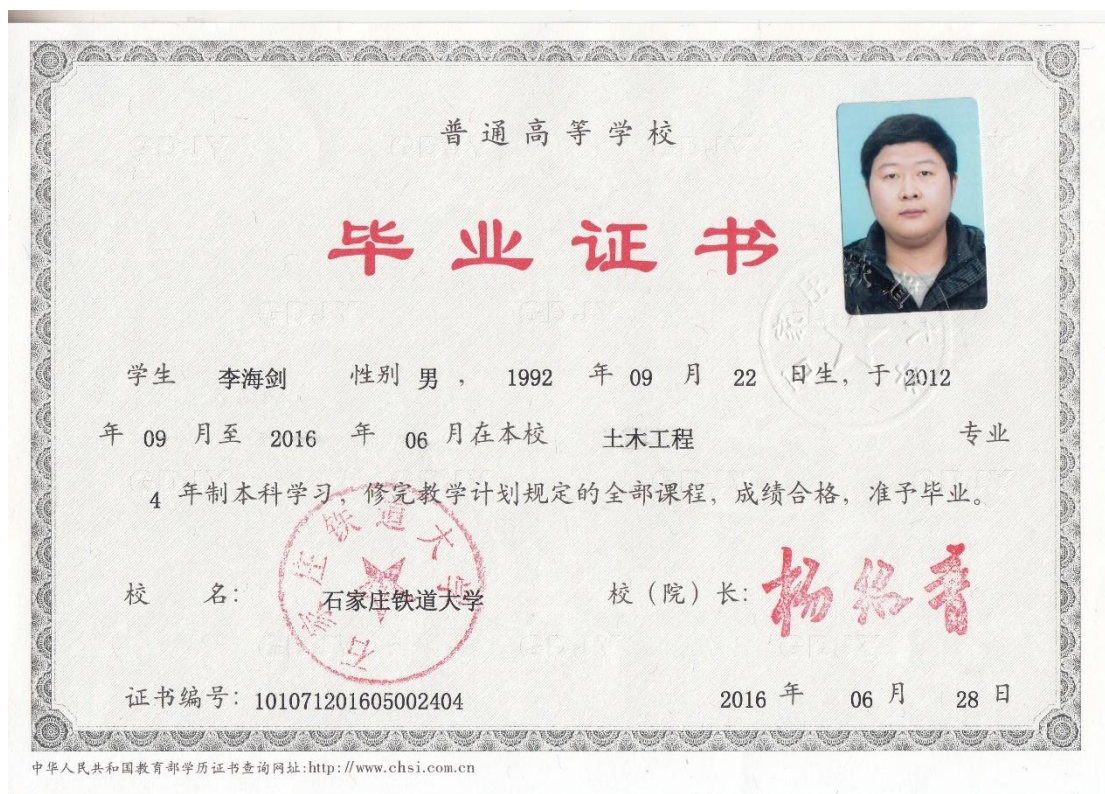 普通高等学校
毕业证书
学生 李海剑 性别 男 ， 1992 年 09 月 22 日生，于 2012
年 09 月至 2016 年 06 月在本校 土木工程 专业
4 年制本科学习，修完教学计划规定的全部课程，成绩合格，准予毕业。
石家庄铁道大学
校 名： 石家庄铁道大学 校（院）长：
证书编号：101071201605002404 2016 年 06 月 28 日
中华人民共和国教育部学历证书查询网址:http://www.chsi.com.cn